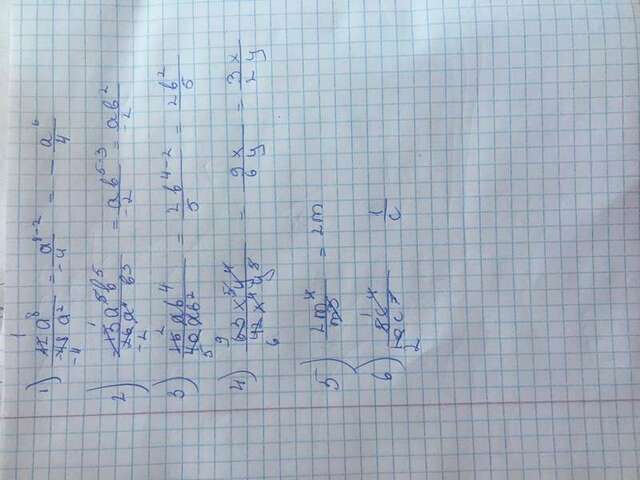 1) 12a⁸/-48a² = a⁸⁻²/-4 = -a⁶/4
2) -13a⁵b⁵/26a⁴b³ = ab⁵⁻³/-2 = ab²/-2
3) ab⁴/40ab² = 2b⁴⁻²/5 = 2b²/5
4) 63x⁵y⁴/42x⁴y⁵ = 9x/6y = 3x/2y
5) 2m⁴/m³ = 2m
6) 1/c